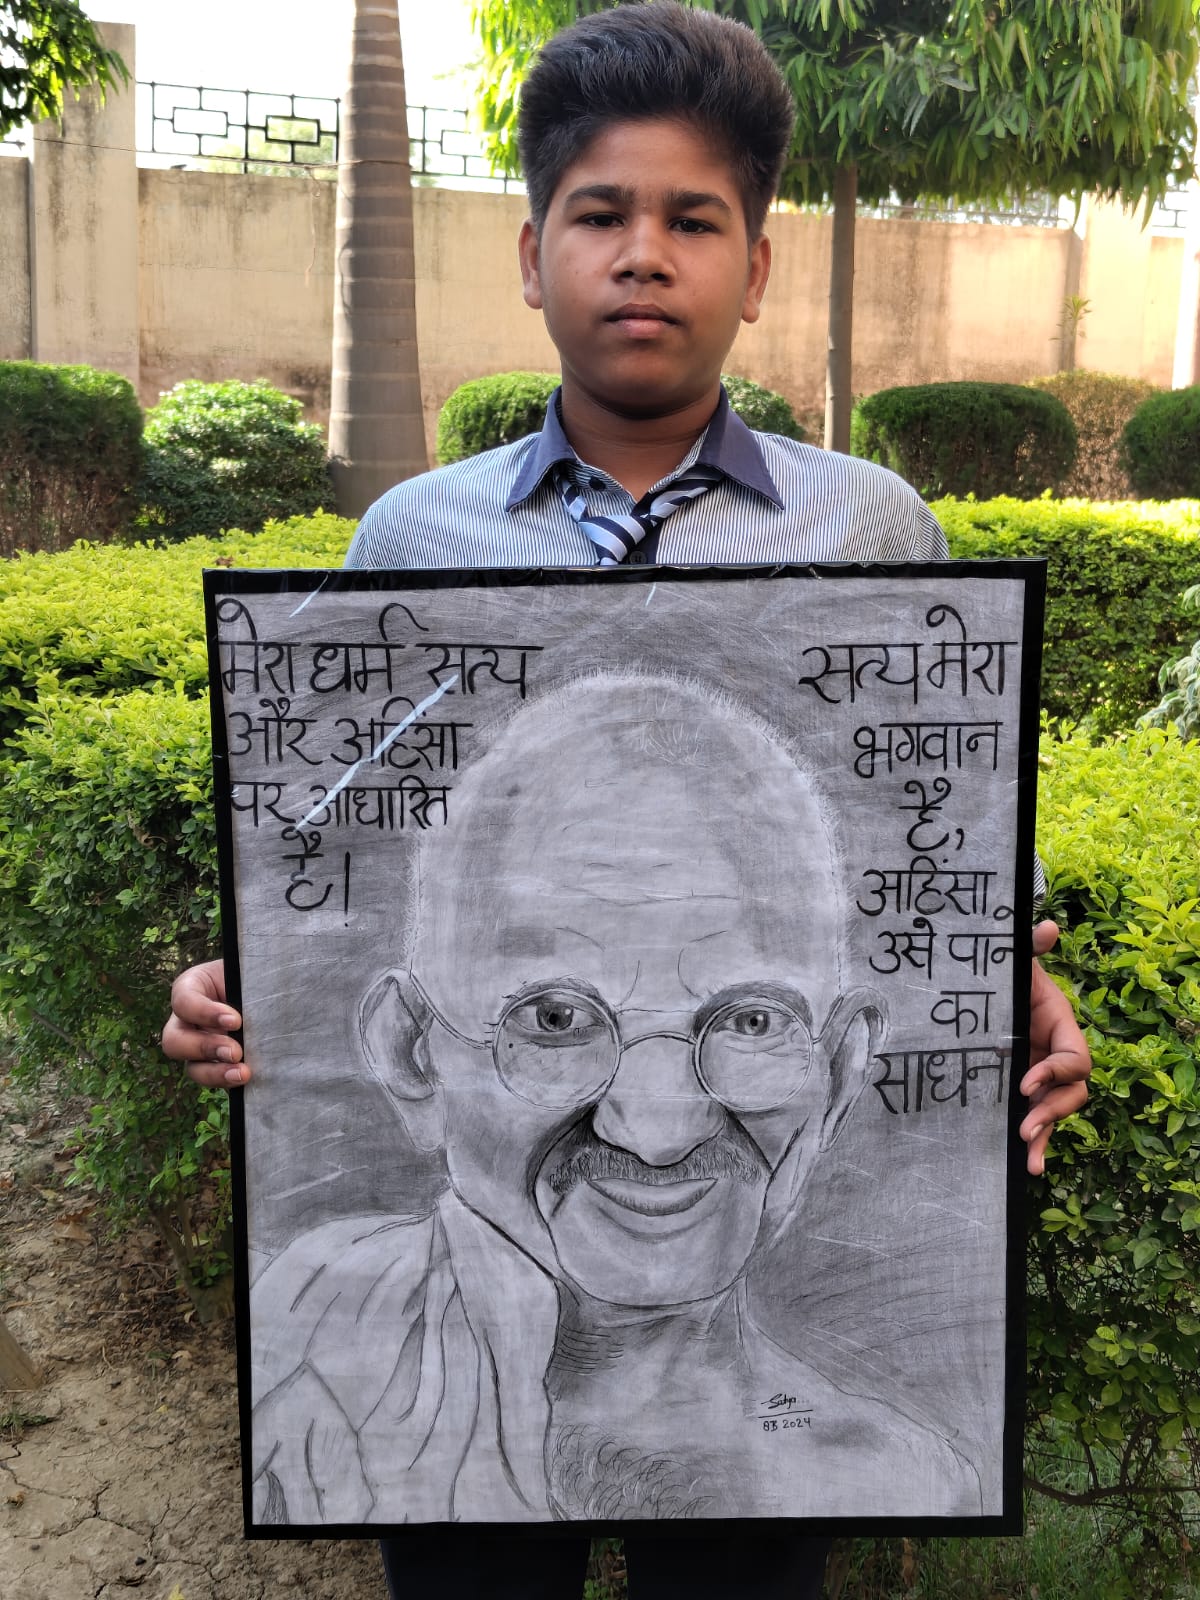 मेरा धर्म सत्य
और अहिंसा
पर आधारित
है।
सत्य मेरा
भगवान
है,
अहिंसा
उसे पाने
का
साधन
Satya...
8B 2024